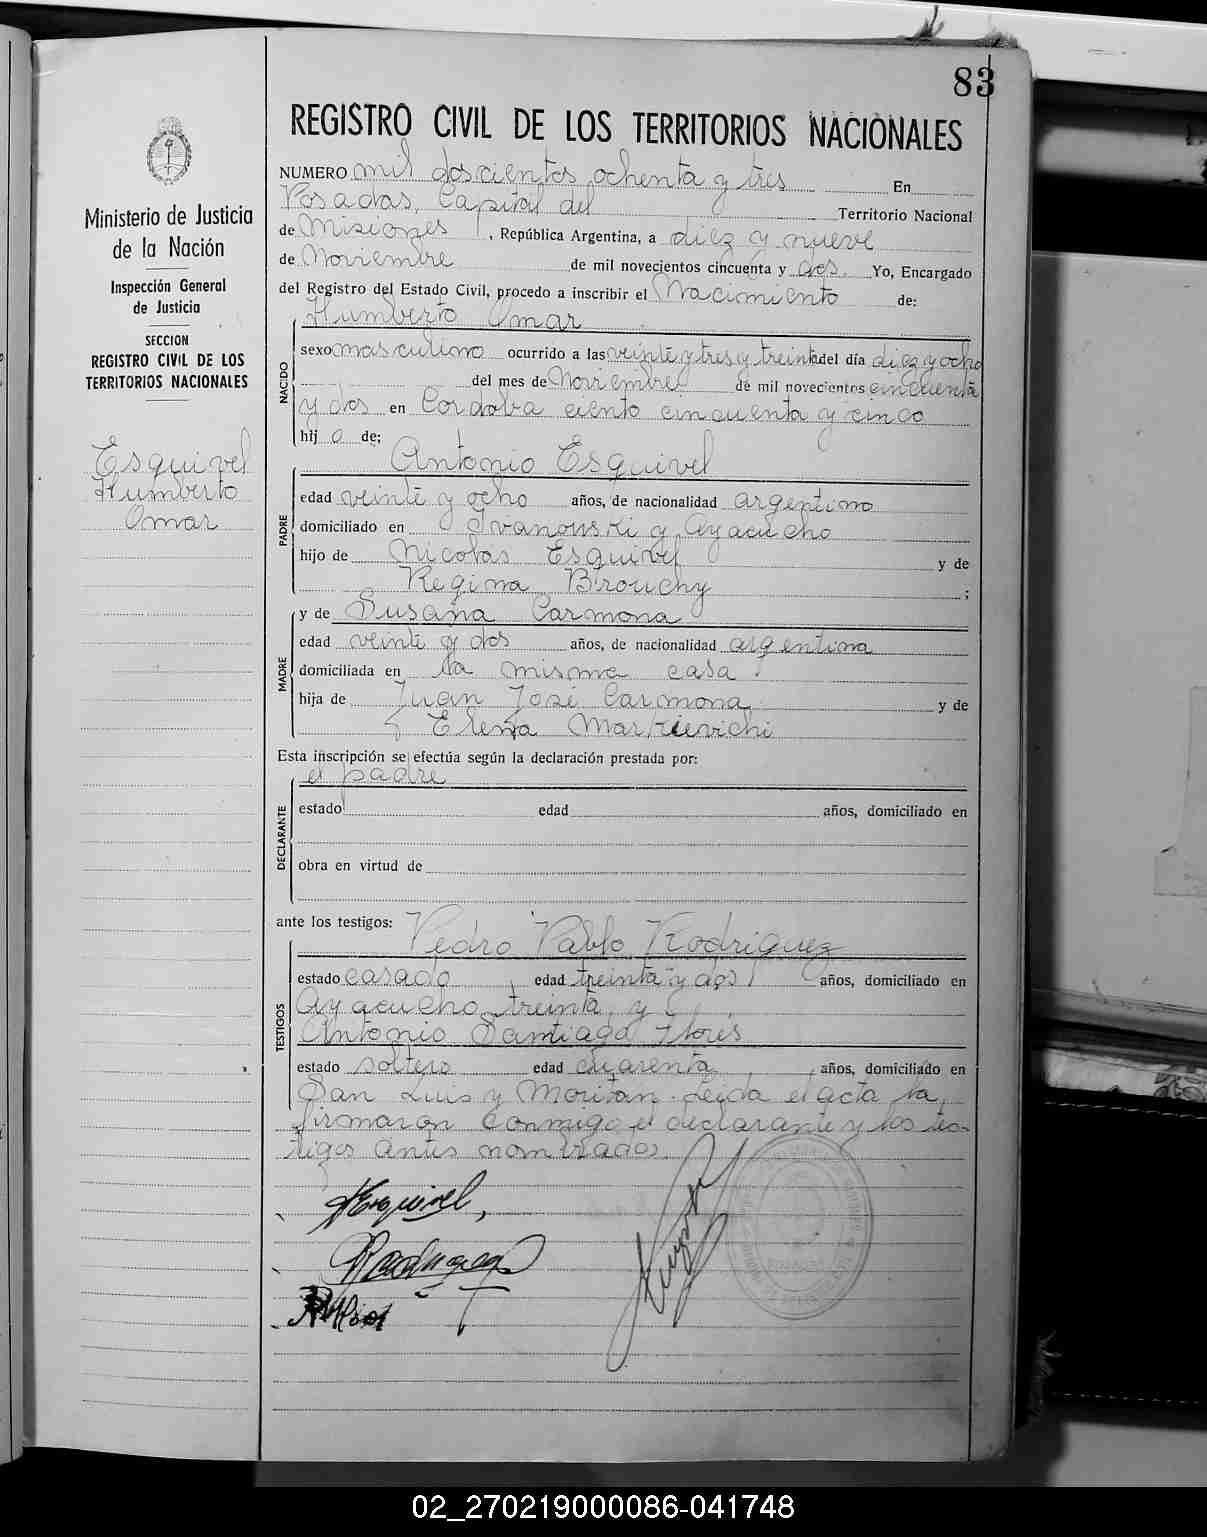 83
REGISTRO CIVIL DE LOS TERRITORIOS NACIONALES
Ministerio de Justicia
de la Nación
Inspección General
de Justicia
SECCION
REGISTRO CIVIL DE LOS
TERRITORIOS NACIONALES
Esquivel
Humberto
Omar
NUMERO mil doscientos ochenta y tres En
Posadas, Capital del Territorio Nacional
de Misiones, República Argentina, a diez y nueve
de Noviembre de mil novecientos cincuenta y dos. Yo, Encargado
del Registro del Estado Civil, procedo a inscribir el Nacimiento de:
Humberto Omar
NACIDO
sexo masculino ocurrido a las veinte y tres y treinta del día diez y ocho
del mes de Noviembre de mil novecientos cincuenta
y dos en Cordoba ciento cincuenta y cinco
hij o de:
Antonio Esquivel
PADRE
edad veinte y ocho años, de nacionalidad argentino
domiciliado en Ivanouski y Ayacucho
hijo de Nicolas Esquivel y de
Regina Brouchy ;
y de Susana Carmona
MADRE
edad veinte y dos años, de nacionalidad argentina
domiciliada en la misma casa
hija de Juan José Carmona y de
Elena
Esta inscripción se efectúa según la declaración prestada por:
el padre
DECLARANTE
estado edad años, domiciliado en
obra en virtud de
ante los testigos: Pedro Pablo Rodriguez
TESTIGOS
estado casado edad treinta y dos años, domiciliado en
Ayacucho treinta y
Antonio Santiago Flores
estado soltero edad cuarenta años, domiciliado en
San Luis y Moritan. Leida el acta la
firmaron conmigo el declarante y los tes-
tigos antes nombrados.
AEsquivel
02_270219000086-041748